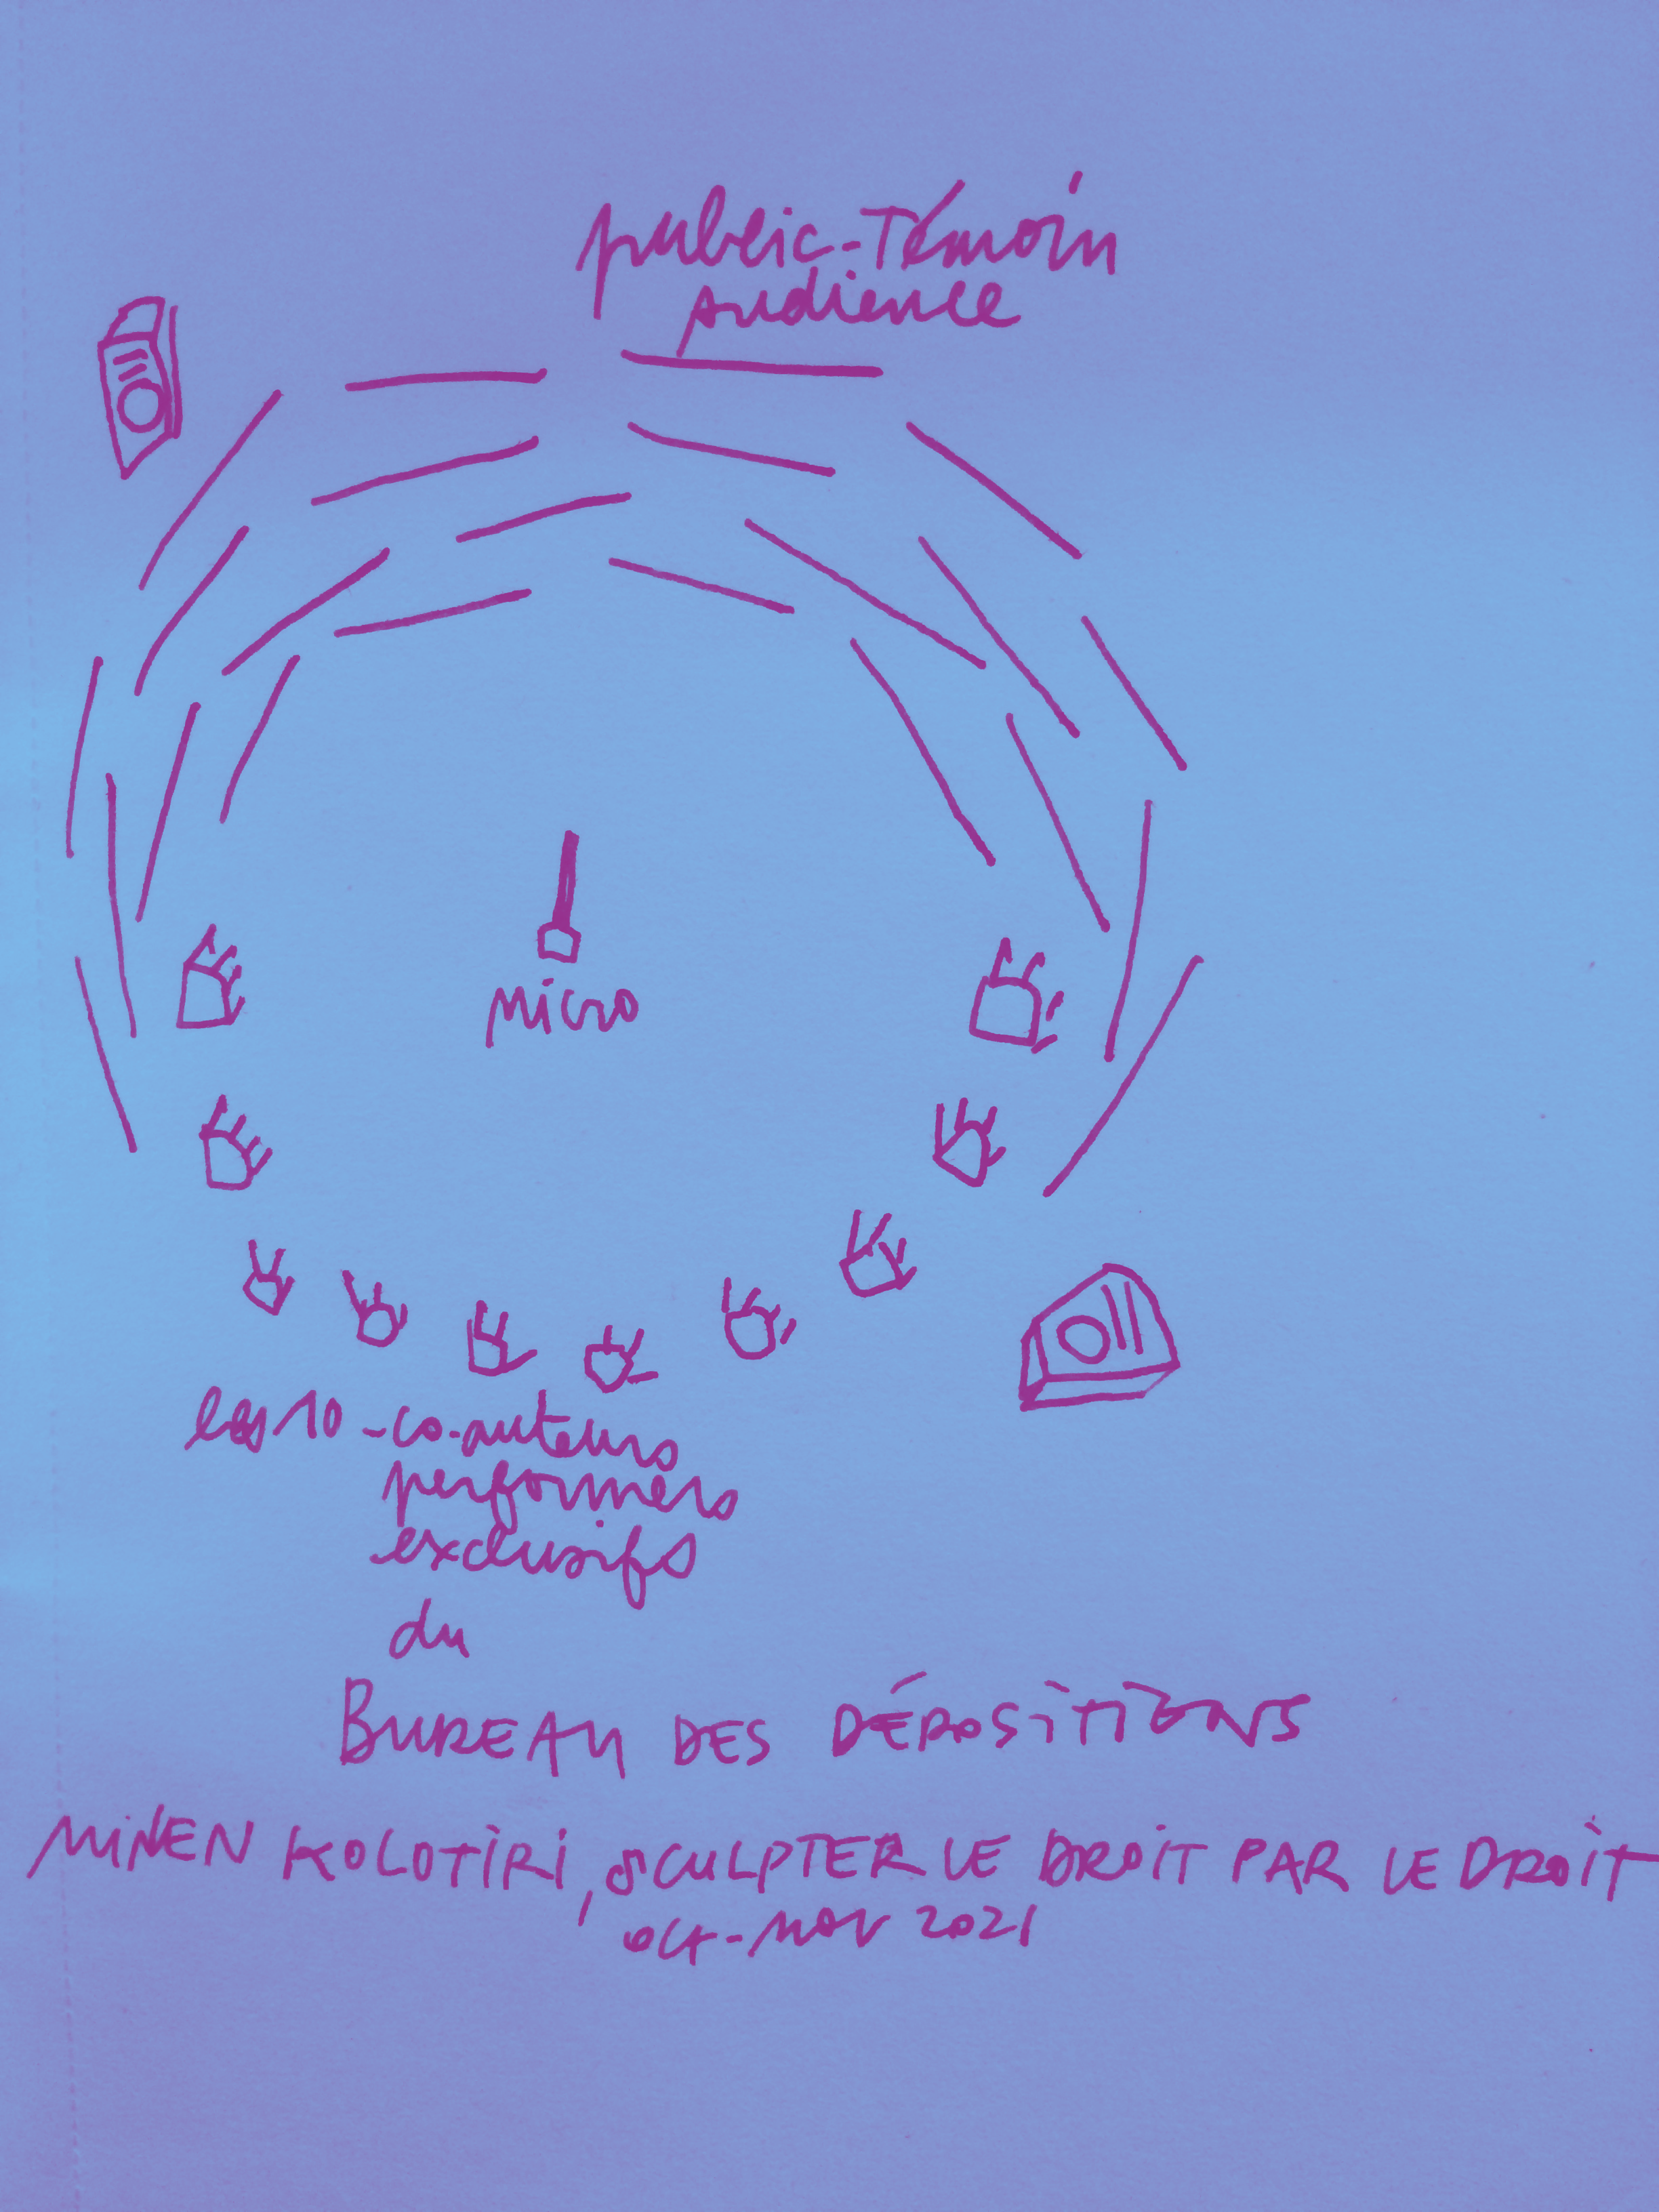 public-Témoin
audience
micro
les 10 - co-auteurs
performers
exclusifs
du
BUREAU DES DÉPOSITIONS
MINEN KOLOTIRI, SCULPTER LE DROIT PAR LE DROIT
oct-nov 2021